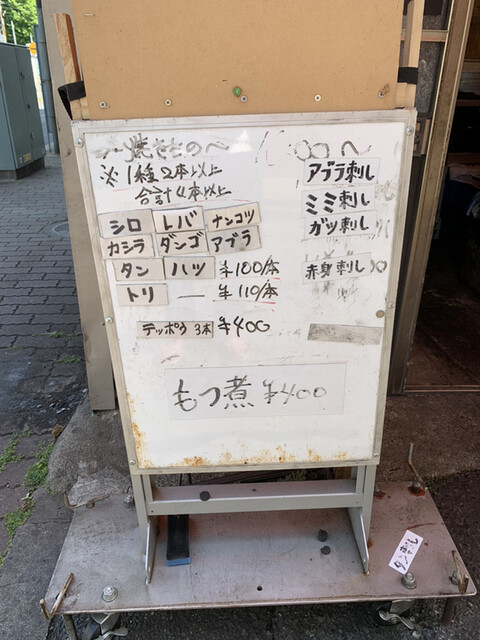 〜焼きもの〜
※1種2本以上
合計4本以上
シロ レバ ナンコツ
カシラ ダンゴ アブラ
タン ハツ ¥100/本
トリ — ¥110/本
テッポウ 3本 ¥400
もつ煮 ¥400
アブラ刺し
ミミ刺し
ガツ刺し
赤身刺し
タン刺し